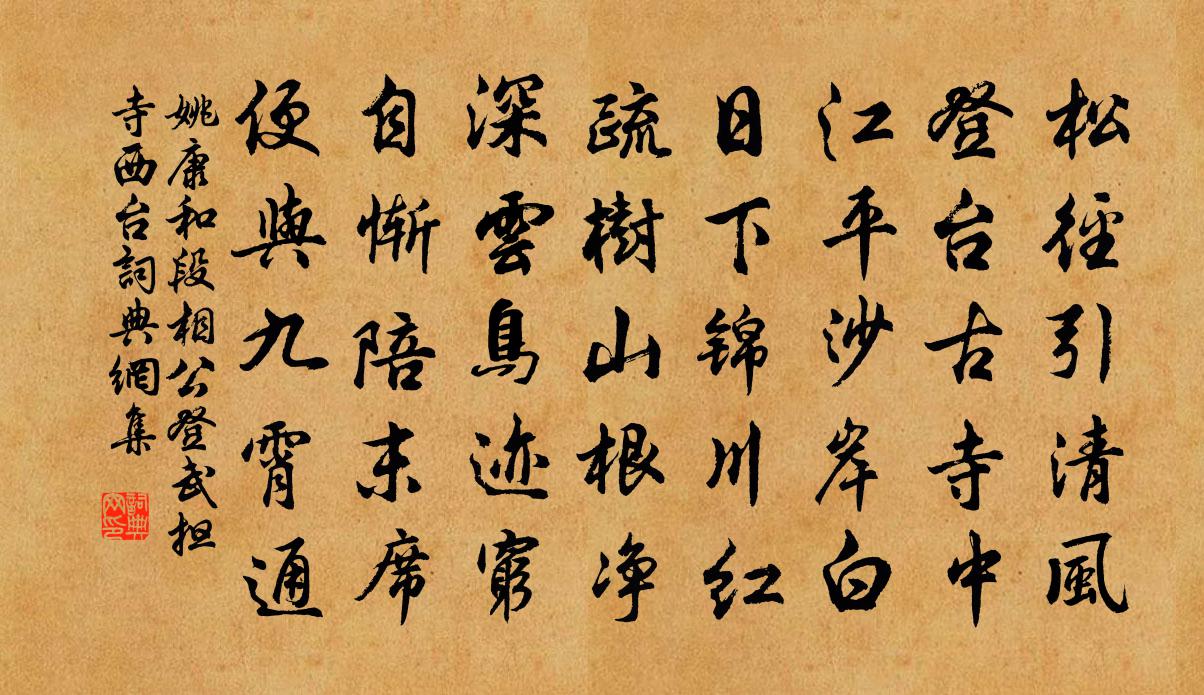 松徑引清風
登台古寺中
江平沙岸白
日下錦川紅
疏樹山根净
深雲鳥迹窮
自慚陪末席
便與九霄通
姚康和段相公登武担
寺西台詞典網集
詞典
网印